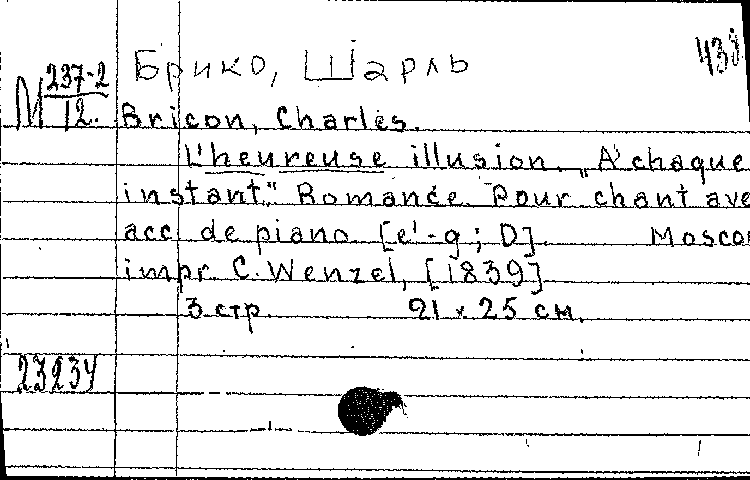 Брико, Шарль
433
М 237-2
12.
Bricon, Charles.
L'heureuse illusion. „A chaque
instant." Romance. Pour chant ave
acc. de piano. [e'-g; D]. Moscou
impr. C. Wenzel, [1839]
3 стр. 21 x 25 см.
23234